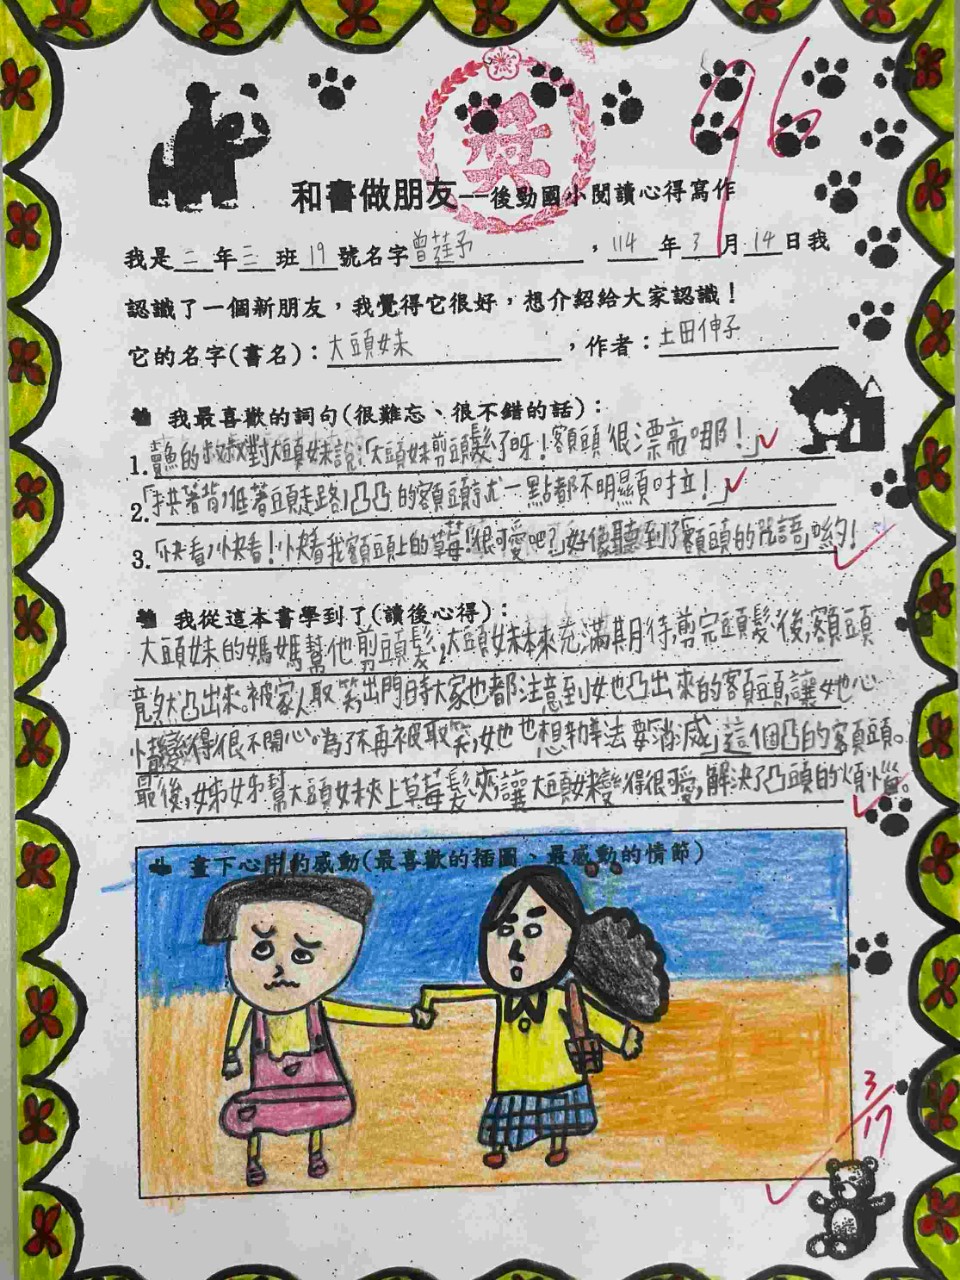 96
獎
和書做朋友--後勁國小閱讀心得寫作
我是二年三班19號名字曾莛予，114年3月14日我
認識了一個新朋友，我覺得它很好，想介紹給大家認識！
它的名字(書名)：大頭妹，作者：土田伸子
我最喜歡的詞句(很難忘、很不錯的話)：
1.賣魚的叔叔對大頭妹說：「大頭妹剪頭髮了呀！額頭很漂亮哪！」
2.「拱著背，低著頭走路，凸凸的額頭就一點都不明顯啦！」
3.「快看，快看！快看我額頭上的草莓！很可愛吧？」好像聽到了額頭的咒語喲！
我從這本書學到了(讀後心得)：
大頭妹的媽媽幫他剪頭髮，大頭妹本來充滿期待，剪完頭髮後，額頭
竟然凸出來。被家人取笑，出門時大家也都注意到她凸出來的額頭，讓她心
情變得很不開心。為了不再被取笑，她也想辦法要「消滅」這個凸的額頭。
最後，姊姊幫大頭妹夾上草莓髮夾，讓大頭妹變得很可愛，解決了凸頭的煩惱。
畫下心中的感動(最喜歡的插圖、最感動的情節)
3/17